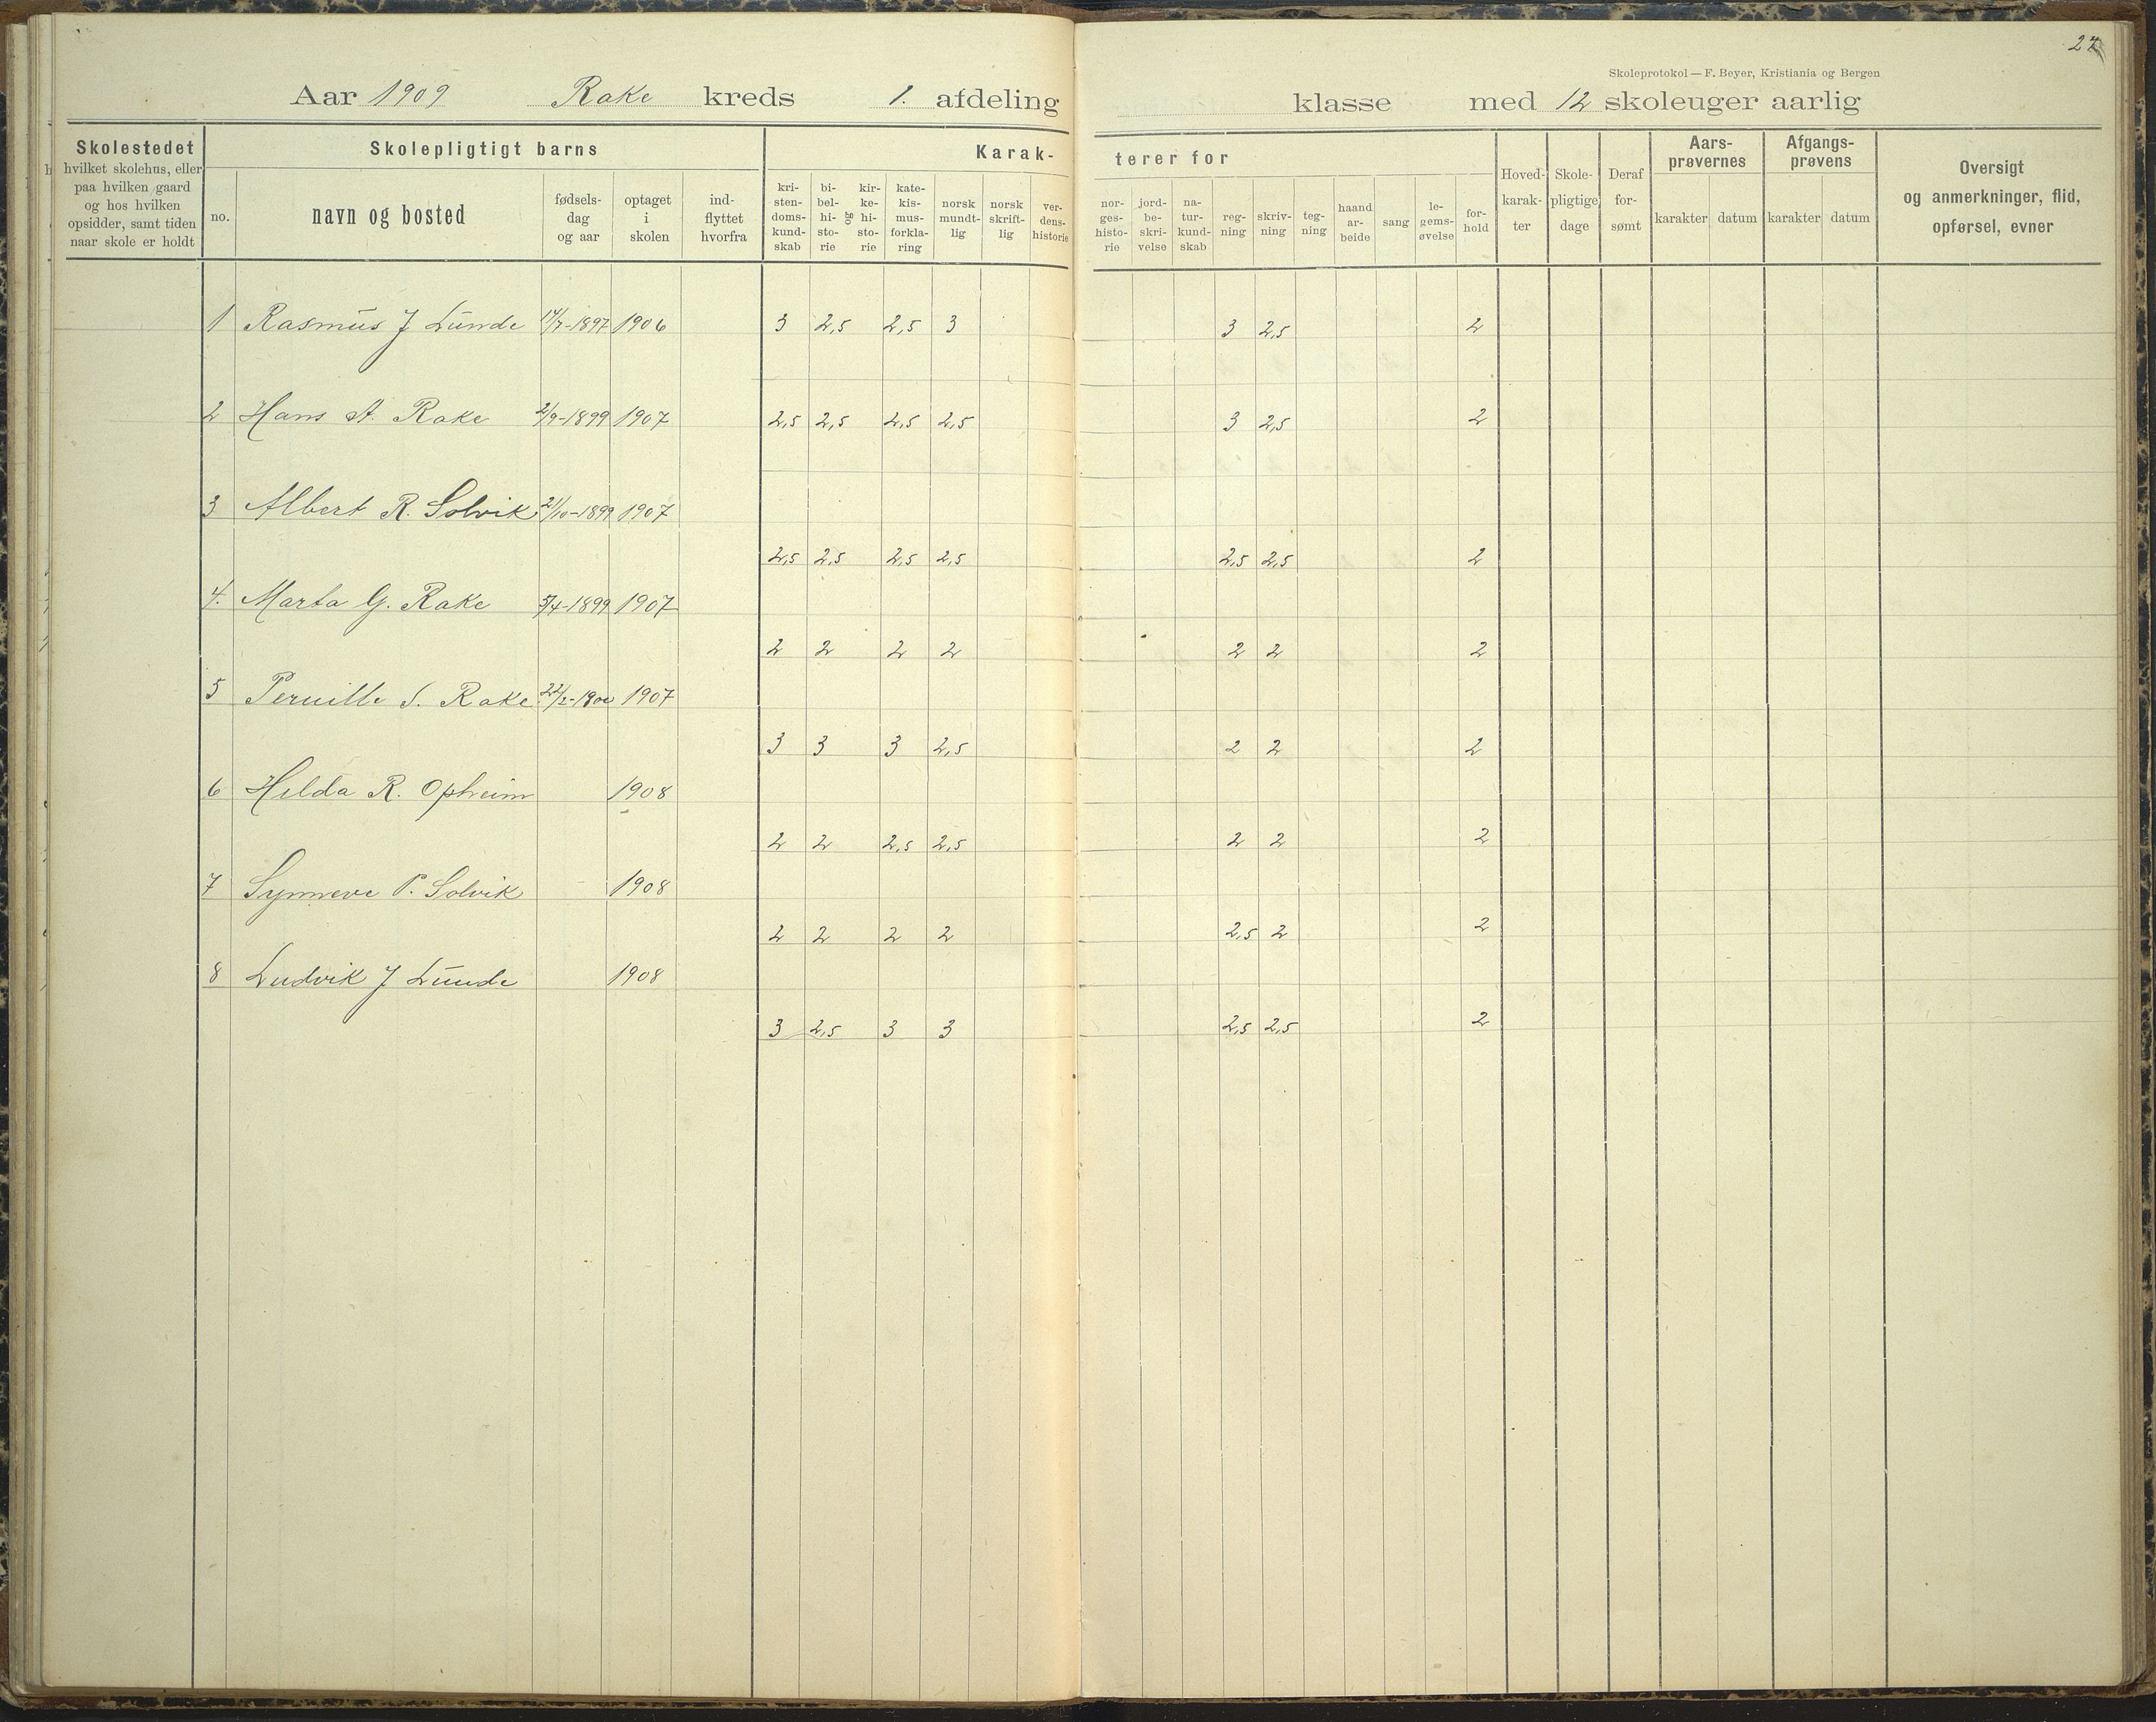 27
Skoleprotokol — F. Beyer, Kristiania og Bergen
Aar 1909 Rake kreds 1. afdeling klasse med 12 skoleuger aarlig
Skolestedet
hvilket skolehus, eller
paa hvilken gaard
og hos hvilken
opsidder, samt tiden
naar skole er holdt
Skolepligtigt barns
no.
navn og bosted
fødsels-
dag
og aar
optaget
i
skolen
ind-
flyttet
hvorfra
Karak-
terer for
kri-
sten-
doms-
kund-
skab
bi-
bel-
hi-
sto-
rie
og
kir-
ke-
hi-
sto-
rie
kate-
kis-
mus-
forkla-
ring
norsk
mundt-
lig
norsk
skrift-
lig
ver-
dens-
historie
nor-
ges-
histo-
rie
jord-
be-
skri-
velse
na-
tur-
kund-
skab
reg-
ning
skriv-
ning
teg-
ning
haand
ar-
beide
sang
le-
gems-
øvelse
for-
hold
Hoved-
karak-
ter
Skole-
pligtige
dage
Deraf
for-
sømt
Aars-
prøvernes
karakter datum
Afgangs-
prøvens
karakter datum
Oversigt
og anmerkninger, flid,
opførsel, evner
1 Rasmus J Lunde 14/7-1897 1906 3 2,5 2,5 3 3 2,5 2
2 Hans A. Rake 2/9-1899 1907 2,5 2,5 2,5 2,5 3 2,5 2
3 Albert R. Solvik 21/10-1899 1907
2,5 2,5 2,5 2,5 2,5 2,5 2
4. Marta G. Rake 5/4-1899 1907
2 2 2 2 2 2 2
5 Pernille S. Rake 22/2-1900 1907
3 3 3 2,5 2 2 2
6 Hilda R. Opheim 1908
2 2 2,5 2,5 2 2 2
7 Synneve P. Solvik 1908
2 2 2 2 2,5 2 2
8 Ludvik J Lunde 1908
3 2,5 3 3 2,5 2,5 2